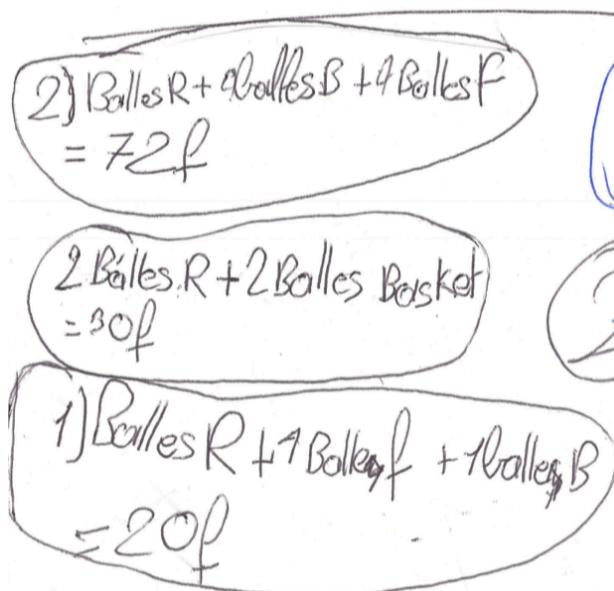 2) Balles R + balles B + 4 Balles F
= 72f
2 Balles R + 2 Balles Basket
= 30f
1) Balles R + 1 Balle f + 1 balle B
= 20f
2